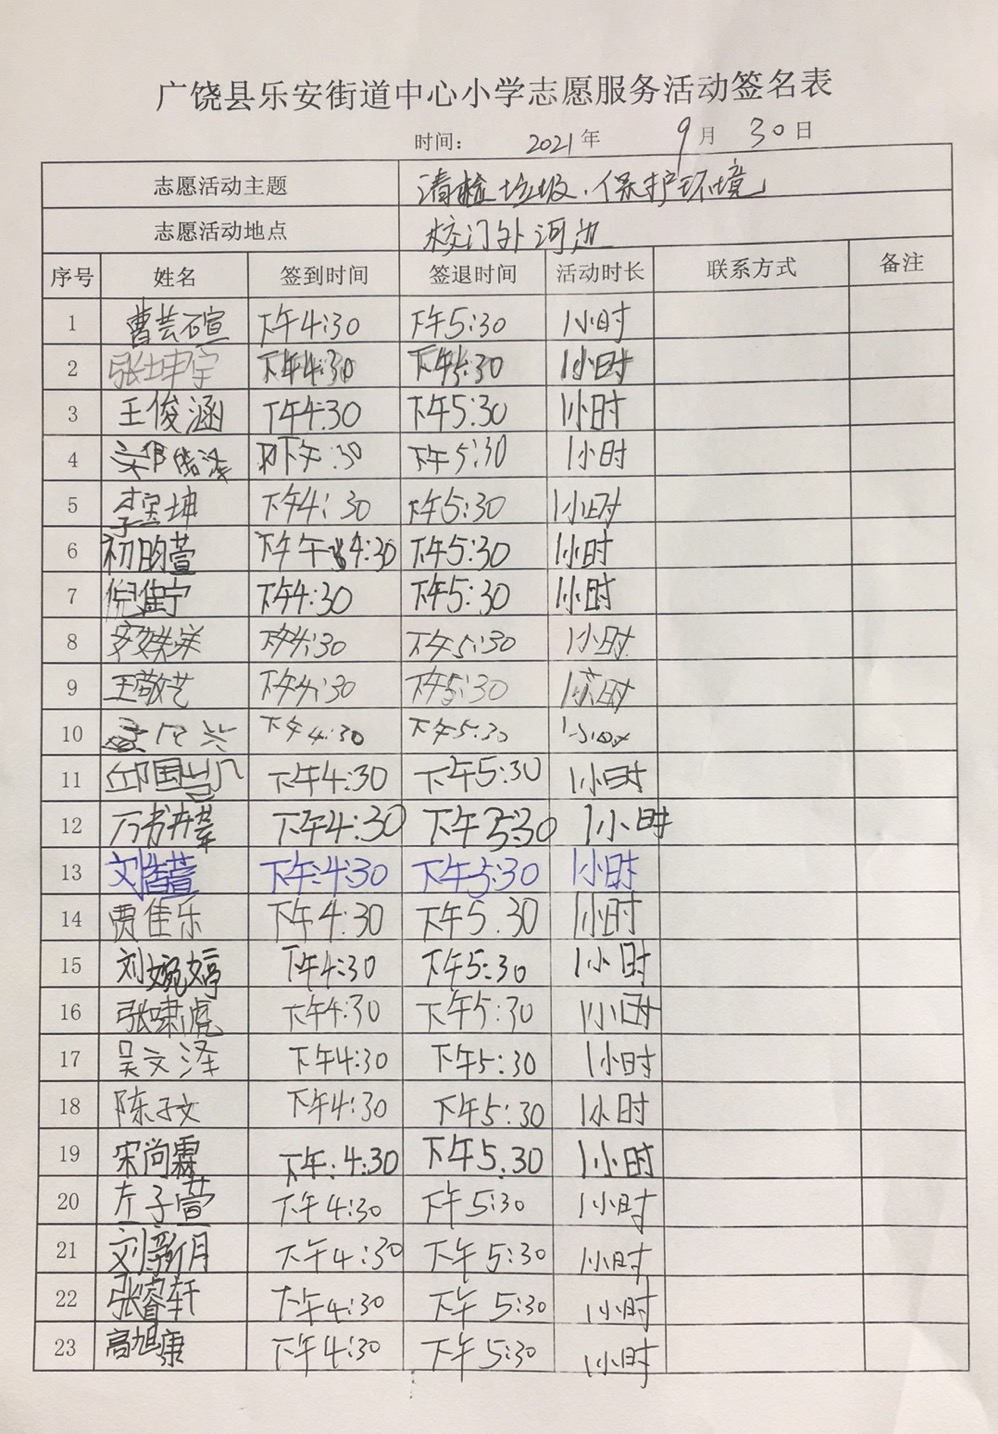 广饶县乐安街道中心小学志愿服务活动签名表
时间： 2021年 9月 30日
志愿活动主题 清捡垃圾.保护环境
志愿活动地点 校门外河边
序号 姓名 签到时间 签退时间 活动时长 联系方式 备注
1 曹芸瑄 下午4:30 下午5:30 1小时
2 张坤宇 下午4:30 下午5:30 1小时
3 王俊涵 下午4:30 下午5:30 1小时
4 下午:30 下午5:30 1小时
5 李宝坤 下午4:30 下午5:30 1小时
6 初昀萱 下午午4:30 下午5:30 1小时
7 倪佳宁 下午4:30 下午5:30 1小时
8 下午4:30 下午5:30 1小时
9 王敬艺 下午4:30 下午5:30 1小时
10 下午4:30 下午5:30 1小时
11 邱国凯 下午4:30 下午5:30 1小时
12 下午4:30 下午5:30 1小时
13 刘皓萱 下午:4:30 下午5:30 1小时
14 贾佳乐 下午4:30 下午5.30 1小时
15 刘婉婷 下午4:30 下午5:30 1小时
16 张啸虎 下午4:30 下午5:30 1小时
17 吴文泽 下午4:30 下午5:30 1小时
18 陈子文 下午4:30 下午5:30 1小时
19 宋尚霖 下午:4:30 下午5.30 1小时
20 左子萱 下午4:30 下午5:30 1小时
21 刘新月 下午4:30 下午5:30 1小时
22 张睿轩 下午4:30 下午5:30 1小时
23 高旭康 下午4:30 下午5:30 1小时